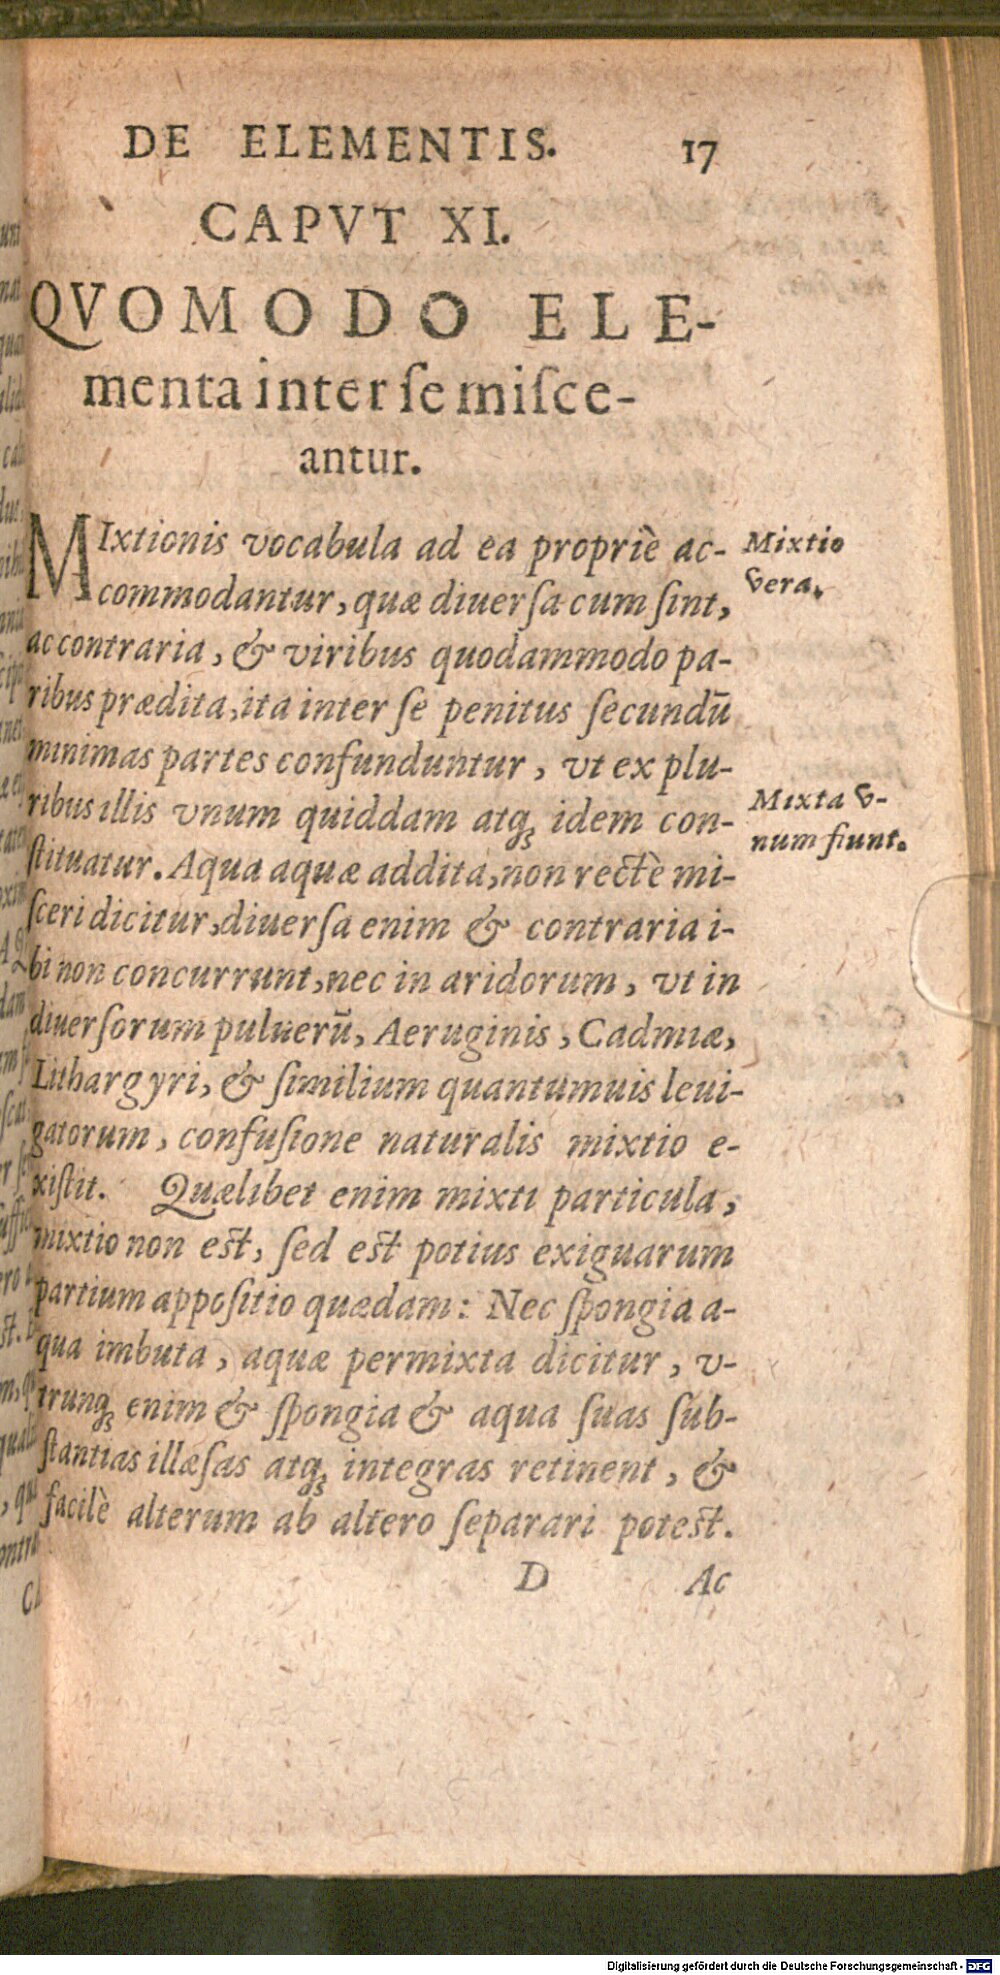 DE ELEMENTIS. 17
CAPVT XI.
QVOMODO ELE-
menta inter ſe miſce-
antur.
MIxtionis vocabula ad ea propriè ac-
commodantur, quæ diuerſa cum ſint,
ac contraria, & viribus quodammodo pa-
ribus prædita, ita inter ſe penitus ſecundū
minimas partes confunduntur, vt ex plu-
ribus illis vnum quiddam atqꝫ idem con-
ſtituatur. Aqua aquæ addita, non rectè mi-
ſceri dicitur, diuerſa enim & contraria i-
bi non concurrunt, nec in aridorum, vt in
diuerſorum puluerū, Aeruginis, Cadmiæ,
Lithargyri, & ſimilium quantumuis leui-
gatorum, confuſione naturalis mixtio e-
xiſtit. Quælibet enim mixti particula,
mixtio non eſt, ſed eſt potius exiguarum
partium appoſitio quædam: Nec ſpongia a-
qua imbuta, aquæ permixta dicitur, v-
trunqꝫ enim & ſpongia & aqua ſuas ſub-
ſtantias illæſas atqꝫ integras retinent, &
facilè alterum ab altero ſeparari poteſt.
D Ac
Mixtio
vera.
Mixta v-
num fiunt.
Digitalisierung gefördert durch die Deutsche Forschungsgemeinschaft - DFG